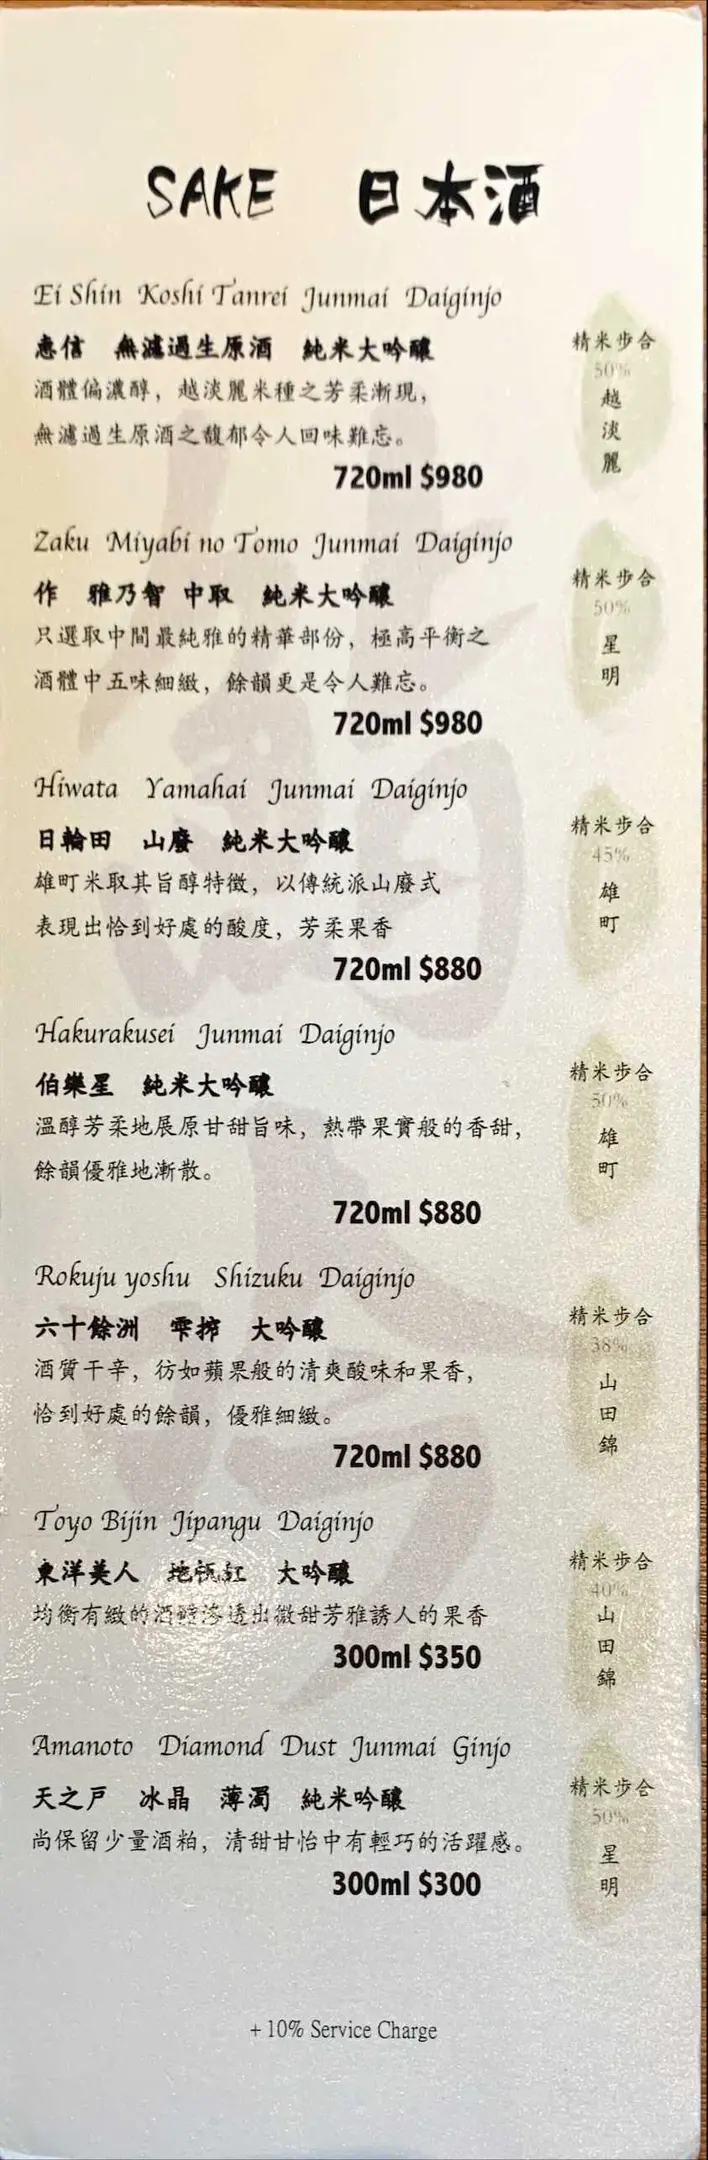 SAKE 日本酒
Ei Shin Koshi Tanrei Junmai Daiginjo
惠信 無濾過生原酒 純米大吟釀
酒體偏濃醇，越淡麗米種之芳柔漸現，
無濾過生原酒之馥郁令人回味難忘。
720ml $980
精米步合
50%
越
淡
麗
Zaku Miyabi no Tomo Junmai Daiginjo
作 雅乃智 中取 純米大吟釀
只選取中間最純雅的精華部份，極高平衡之
酒體中五味細緻，餘韻更是令人難忘。
720ml $980
精米步合
50%
星
明
Hiwata Yamahai Junmai Daiginjo
日輪田 山廢 純米大吟釀
雄町米取其旨醇特徵，以傳統派山廢式
表現出恰到好處的酸度，芳柔果香
720ml $880
精米步合
45%
雄
町
Hakurakusei Junmai Daiginjo
伯樂星 純米大吟釀
溫醇芳柔地展原甘甜旨味，熱帶果實般的香甜，
餘韻優雅地漸散。
720ml $880
精米步合
50%
雄
町
Rokuju yoshu Shizuku Daiginjo
六十餘洲 雫搾 大吟釀
酒質干辛，彷如蘋果般的清爽酸味和果香，
恰到好處的餘韻，優雅細緻。
720ml $880
精米步合
38%
山
田
錦
Toyo Bijin Jipangu Daiginjo
東洋美人 地帆紅 大吟釀
均衡有緻的酒體滲透出微甜芳雅誘人的果香
300ml $350
精米步合
40%
山
田
錦
Amanoto Diamond Dust Junmai Ginjo
天之戶 冰晶 薄濁 純米吟釀
尚保留少量酒粕，清甜甘怡中有輕巧的活躍感。
300ml $300
精米步合
50%
星
明
+ 10% Service Charge